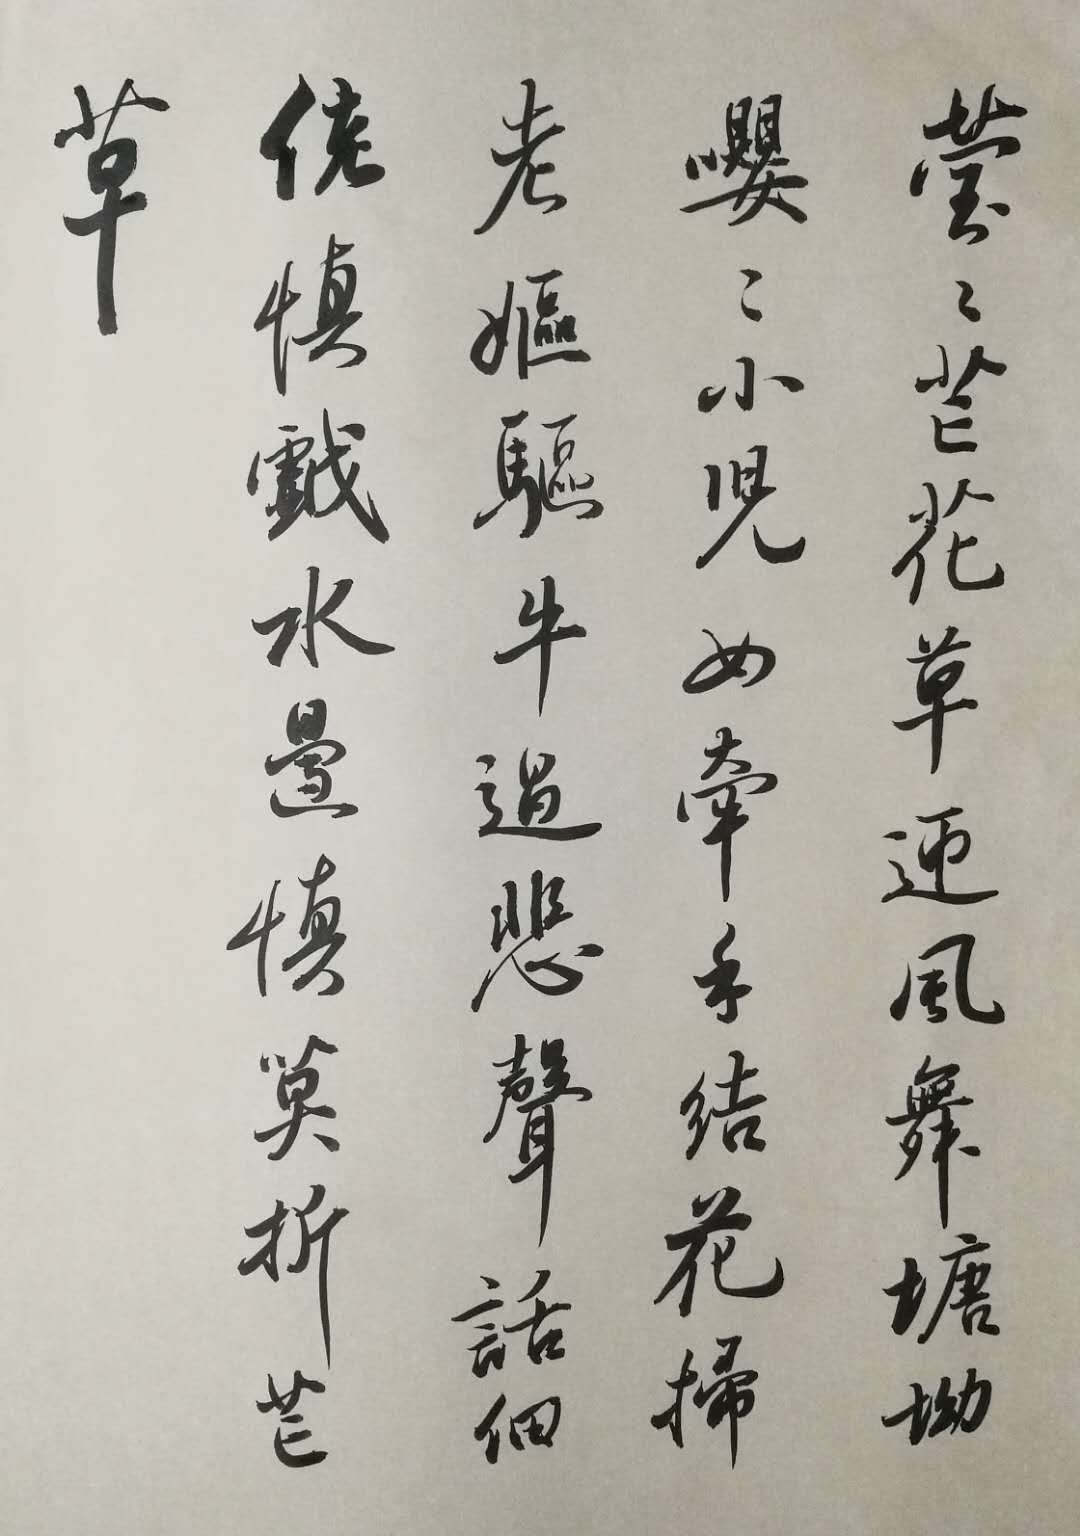 瑩〻芒花草迎風舞塘坳
嬰〻小兒女牽手結花掃
老嫗驅牛過悲聲話佃
佬慎戲水邊慎莫折芒
草